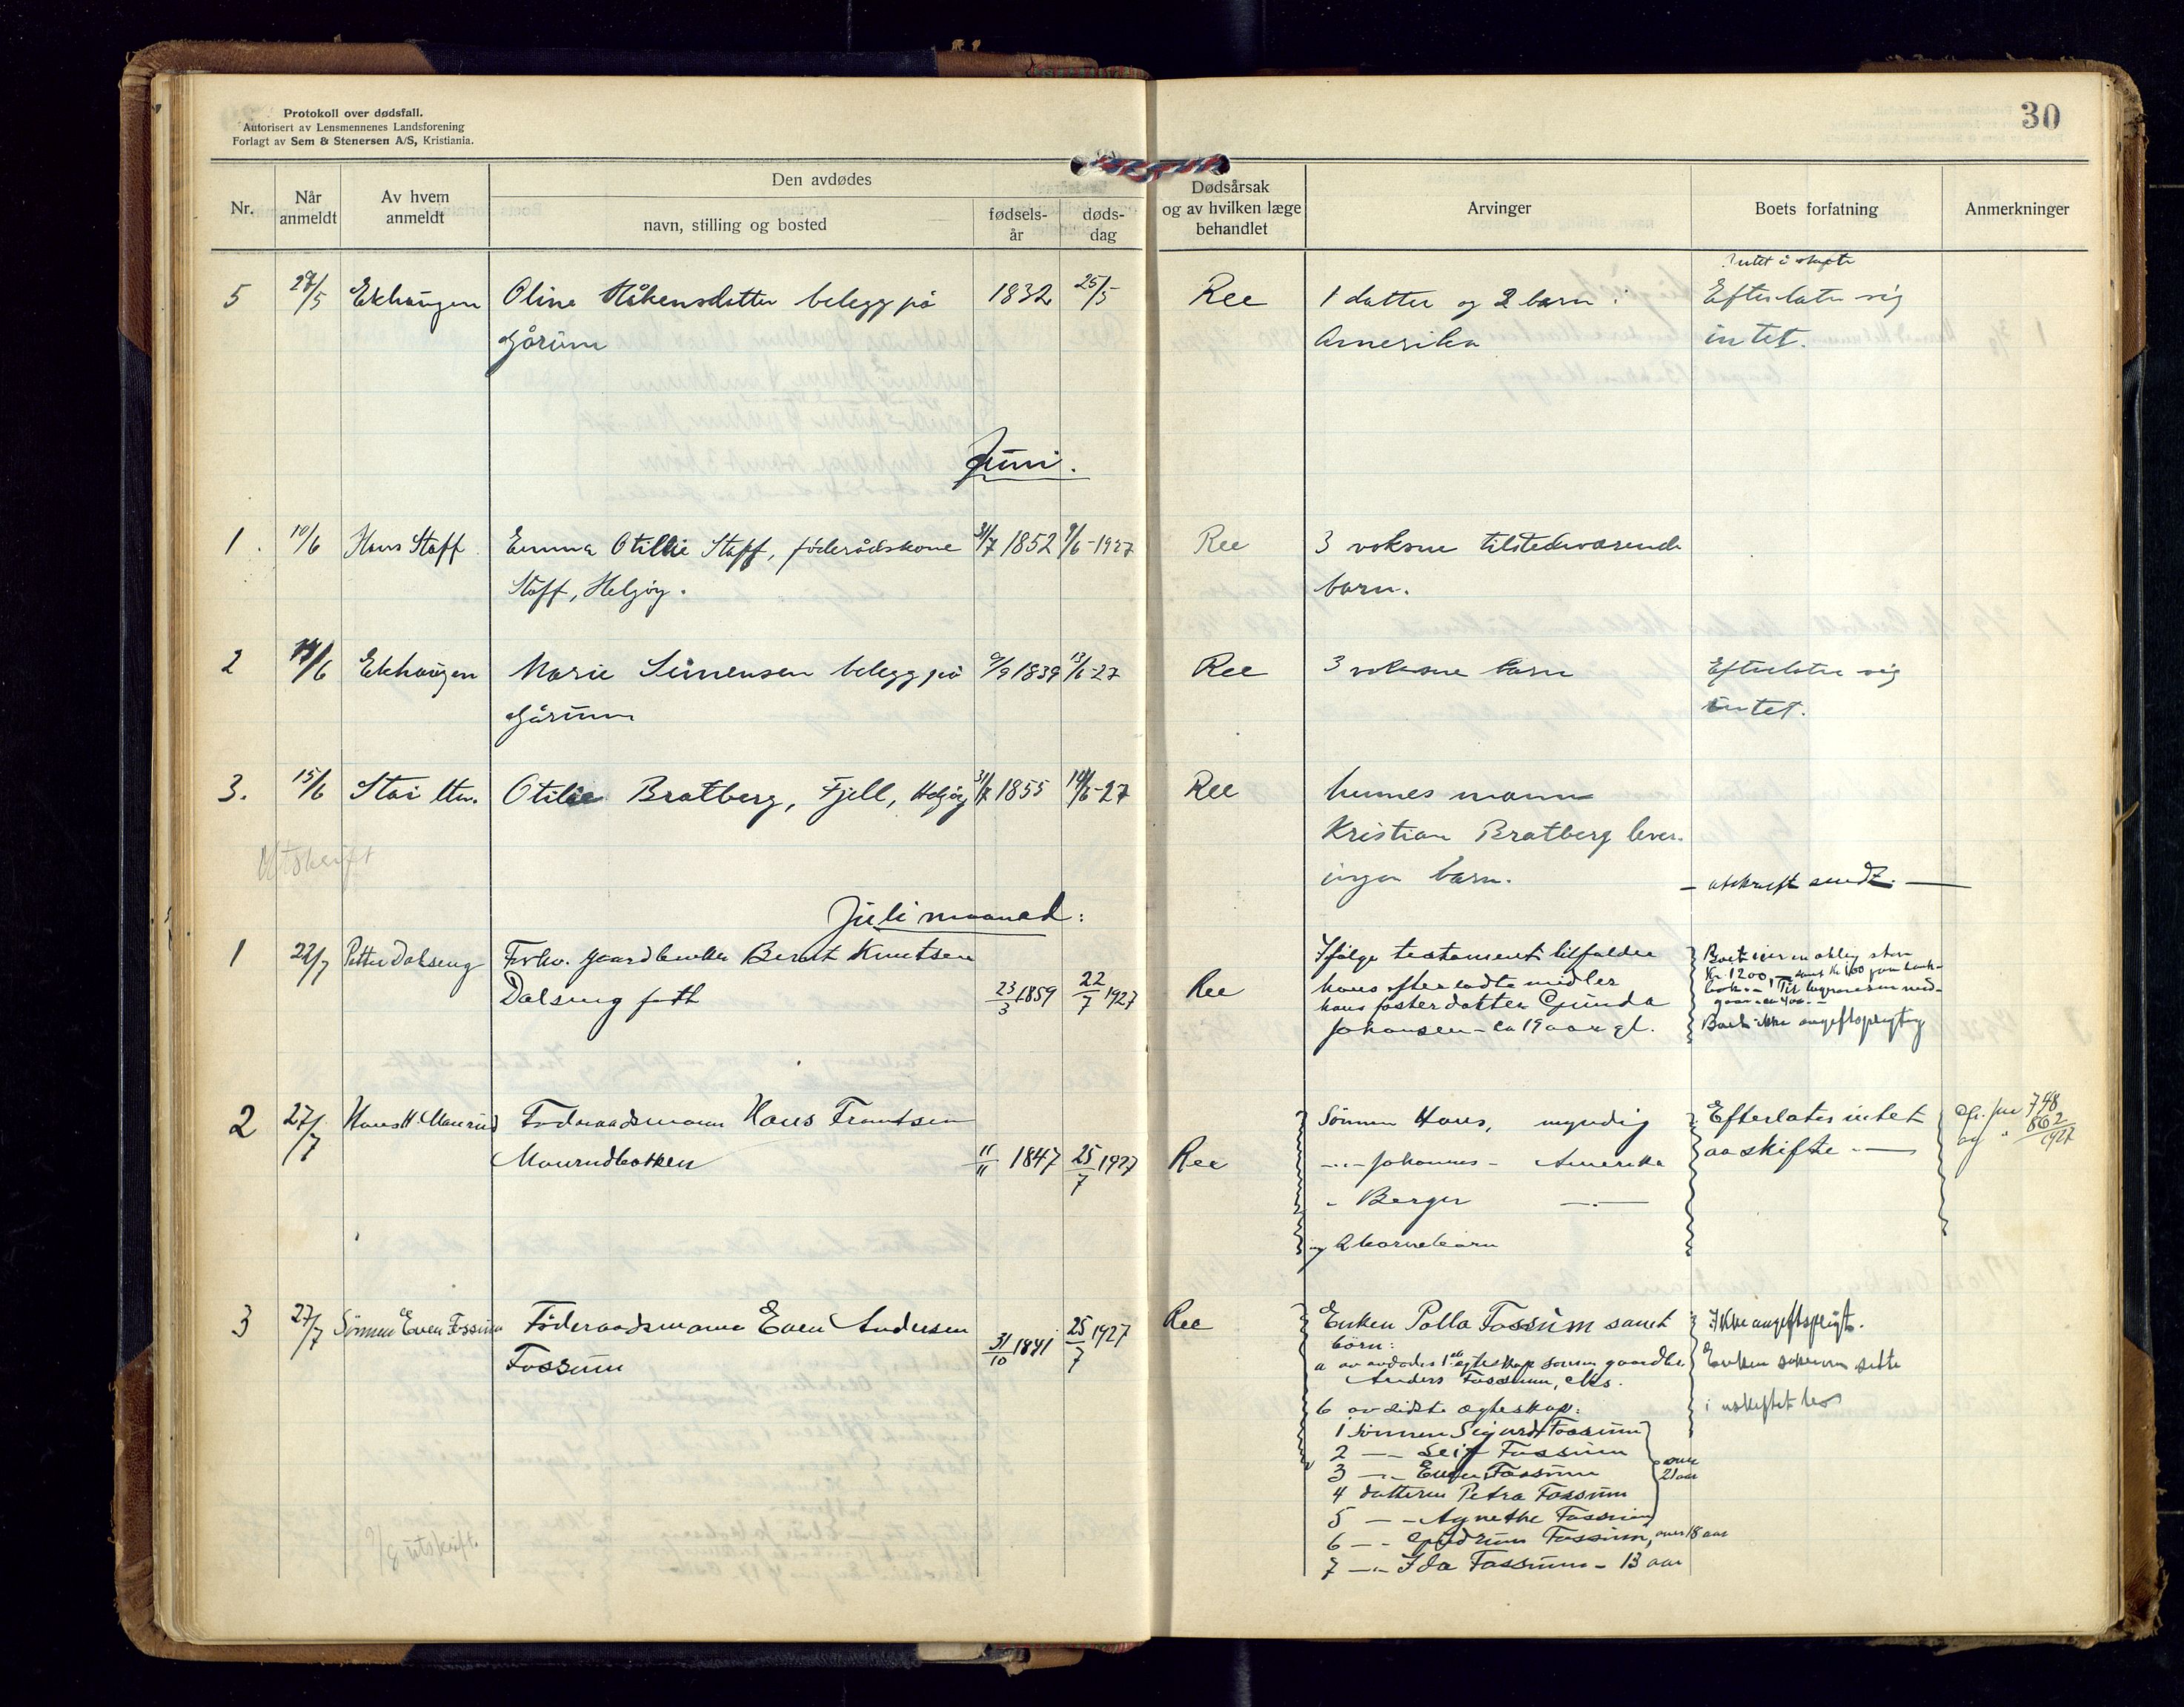 Protokoll over dødsfall.
Autorisert av Lensmennenes Landsforening
Forlagt av Sem & Stenersen A/S, Kristiania.
30
Nr.
Når anmeldt
Av hvem anmeldt
Den avdødes
navn, stilling og bosted
fødsels-
år
døds-
dag
Dødsårsak
og av hvilken læge
behandlet
Arvinger
Boets forfatning
Anmerkninger
5 28/5 Ekhaugen Oline Håkensdatter belegg på 1832 25/5 Ree 1 datter og 2 barn i Efterlater sig
Gårum Amerika intet.
Juni.
1. 10/6 Hans Staff Emma Otillie Staff, føderådskone 31/7 1852 9/6-1927 Ree 3 voksne tilstedeværende
Staff, Helgøy. barn.
2 14/6 Ekhaugen Marie Simensen belegg på 9/9 1839 13/6-27 Ree 3 voksne barn Efterlater sig
Gårum intet.
3. 15/6 Otilie Bratberg, Fjell, Helgøy 1855 14/6-27 Ree hennes mann
Kristian Bratberg lever.
Utskrift
ingen barn. - utskrift sendt. -
Juli maaned:
1 22/7 Petter Dalseng Forhv. gaardbruker Bernt Knutsen Ifølge testament tilfalder
Dalseng 23/3 1859 22/7 1927 Ree hans efterladte midler
hans fosterdatter Gunda
Johansen - ca 19 aar gl. Boet ikke avgiftspligtig
2 27/7 Hans H. Maurud Føderaadsmann Hans Frantsen Sønnen Hans, myndig Efterlater intet
Maurudbakken 11/11 1847 25/7 1927 Ree -"- Johannes - Amerika aa skifte. -
cfr. jnr 748
og " 862
1927
" Berger -"-
og 2 barnebarn
3 27/7 Sønnen Even Fossum Føderaadsmann Even Andersen Ree Enken Palla Fossum samt Ikke avgiftspligt.
Fossum 31/10 1841 25/7 1927 børn:
a av avdødes 1ste egteskap sønnen gaardbr.
Anders Fossum, Nes.
b av sidste ægteskap:
1 sønnen Sigurd Fossum
2 -"- Leif Fossum
3 -"- Even Fossum
over
21 aar
4 datteren Petra Fossum
5 -"- Agnethe Fossum
6 -"- Gudrun Fossum, over 18 aar
7 -"- Ida Fossum - 13 aar
Enken sitte
i uskiftet bo
utskrift.